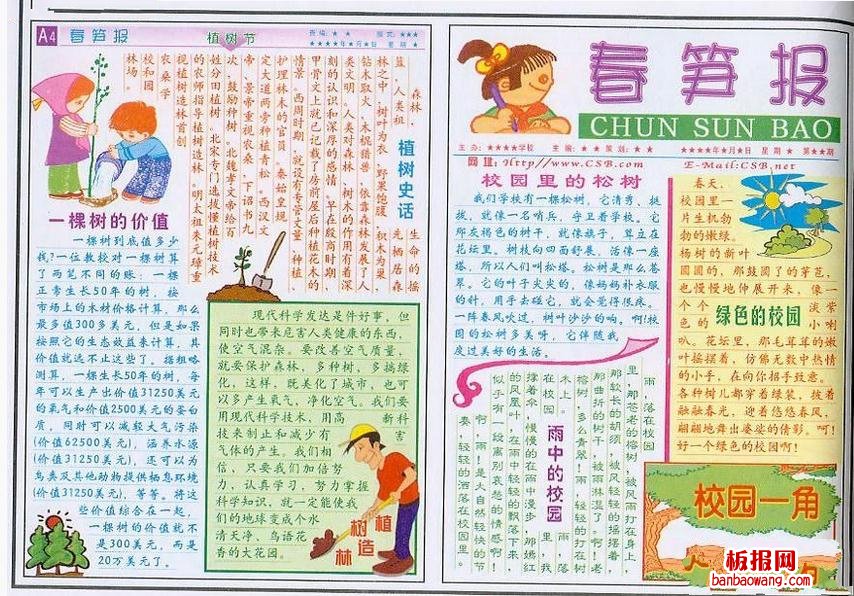 A4 春笋报
植树节
责编：★ ★ 版式：★★★
★★★★年★月★日 星期 ★
植树史话
森林，生命的摇
篮，人类祖先栖居森
林之中，树叶为衣，野果饱腹，积木为巢，
钻木取火，木棍猎兽，依靠森林发展了人
类文明。人类对森林、树木的作用有着深
刻的认识和深厚的感情，早在殷商时期，
甲骨文上就已记载了房前屋后种植花木的
情景。西周时期，就设有专管丈量、种植、
护理林木的官员。秦始皇规
定大道两旁种植青松。西汉文
帝、景帝重视农桑，下诏书九
次，鼓励种树。北魏孝文帝给百
姓分田植树。北宋专门选拔懂植树技术
的农师指导植树造林。明太祖朱元璋重
视植树造林首创
农桑学
校和园
林场。
一棵树的价值
一棵树到底值多少
我？一位教授对一棵树算
了两笔不同的账：一棵
正常生长50年的树，按
市场上的木材价格计算，那么
最多值300多美元，但是如果
按照它的生态效益来计算，其
价值就远不止这些了。据粗略
测算，一棵生长50年的树，每
年可以生产出价值31250美元
的氧气和价值2500美元的蛋白
质，同时可以减轻大气污染
(价值62500美元)，涵养水源
(价值31250美元)，还可以为
鸟类及其他动物提供栖息环境
(价值31250美元)，等等。将这
些价值综合在一起，
一棵树的价值就不
是300美元，而是
20万美元了。
现代科学发达是件好事，但
同时也带来危害人类健康的东西，
使空气混杂。要改善空气质量，
就要保护森林，多种树，多搞绿
化，这样，既美化了城市，也可
以多产生氧气，净化空气。我们要
用现代科学技术，用高 新科
技来制止和减少有 害
气体的产生。我们相
信，只要我们加倍努
力，认真学习，努力掌握
科学知识，就一定能使我
们的地球变成个水
清天净、鸟语花
香的大花园。
植树
造林
春笋报
CHUN SUN BAO
主办：★★★★学校 主编：★★ 策划：★★ ★★★★年★月★日 星期★ 第★★期
网址：Http//www.CSB.com E-Mail:CSB.net
校园里的松树
我们学校有一棵松树，它清秀、挺
拔，就像一名哨兵，守卫着学校。它
那灰褐色的树干，就像旗子，耸立在
花坛里。树枝向四面舒展，活像一座
塔，所以人们叫松塔。松树是那么苍
翠。它的叶子尖尖的，像妈妈补衣服
的针，用手去碰它，就会觉得很疼。
一阵春风吹过，树叶沙沙的响。啊！校
园的松树多美呀，它伴随我
度过美好的生活。
绿色的校园
春天，
校园里一
片生机勃
勃的嫩绿。
杨树的新叶
圆圆的，那鼓圆了的芽苞，
也慢慢地伸展开来，像一
个个 淡紫
色的 小喇
叭。花坛里，那毛茸茸的嫩
叶摇摆着，仿佛无数中热情
的小手，在向你招手致意。
各种树儿都穿着绿装，披着
融融春光，迎着悠悠春风，
翩翩地舞出婆娑的倩影。呵！
好一个绿色的校园啊！
雨中的校园
雨，落在校园
里，那苍老的榕树，被风雨打在身上，
那较长的胡须，被风轻轻的摇摆着，
那曲折的树干，被雨淋湿了。啊！老
榕树，多么青翠！雨，轻轻的打在树
木上。 雨，落
在校园 里，我
撑着伞，慢慢的在雨中漫步，那嫣红
的凤凰叶，在雨中轻轻的飘落下来，
似乎有一段离别哀愁的情感啊！
啊，雨！是大自然轻快的节
奏，轻轻的洒落在校园里。
校园一角
板报网
banbaowang.com